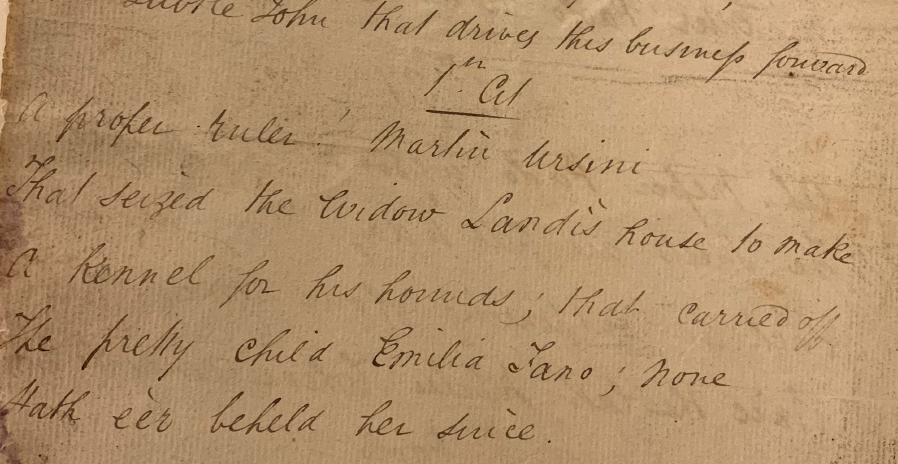 Subtle John that drives this business forward
1st Cit
A proper ruler! Martin Ursini
That seized the Widow Landi's house to make
A kennel for his hounds; that carried off
The pretty child Emilia Fano; none
Hath e'er beheld her since.